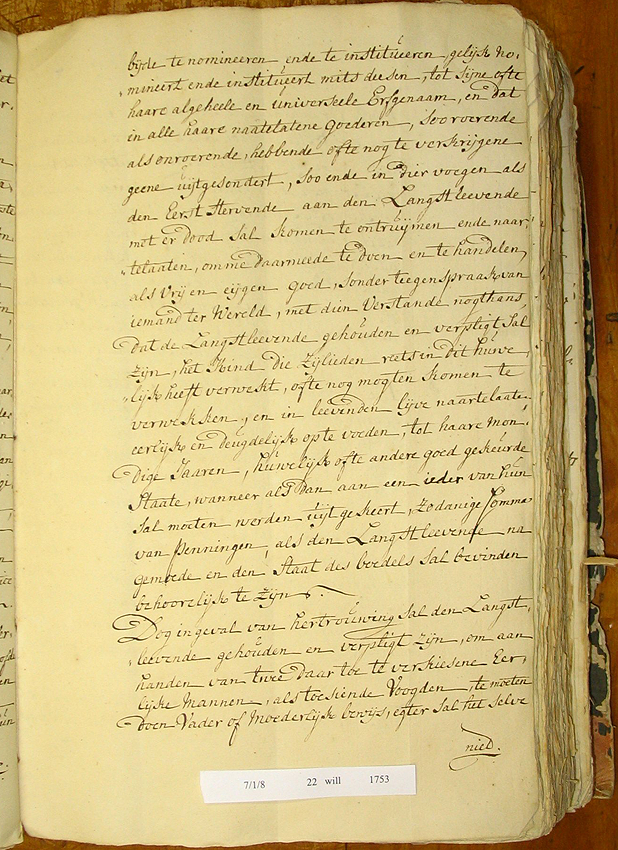 bijde te nomineeren, ende te institueeren, gelijk no,
,mineert ende institueert mits deesen, tot sijne ofte
haare algeheele en universeele Erfgenaam, en dat
in alle haare naatelatene goederen, soo roerende
als onroerende, hebbende ofte nog te verkrijgene
geene uijtgesondert, soo ende in dier voegen als
den Eerst stervende aan den Langstleevende
met er dood sal komen te ontruijmen ende naar,
,telaaten, omme daarmeede te doen en te handelen,
als vrij en eijgen goed, sonder teegenspraak van
iemand ter Wereld, met dien verstande nogthans
dat de Langstleevende gehouden en verpligt sal
zijn, het Kind die zijlieden reets in dit huwe,
,lijk heeft verwekt, ofte nog mogten komen te
verwekken, en in leevenden lijve naartelaaten
eerlijk en deugdelijk op te voeden, tot haare mon,
dige Jaaren, huwelijk ofte andere goed gekeurde
Staate, wanneer als dan aan een ieder van hun
sal moeten werden uijtgekeert, zodanige somma
van Penningen, als den Langstleevende na
gemoede en den staat des boedels sal bevinden
behoorelijk te zijn
Dog ingeval van hertrouwing sal den Langst,
,leevende gehouden en verpligt zijn, om aan
handen van twee daar toe te verkiesene Eer,
lijke Mannen, als toesiende Voogden, te moeten
doen Vader of Moederlijk bewijs, egter sal het selve
nied.
7/1/8 22 will 1753